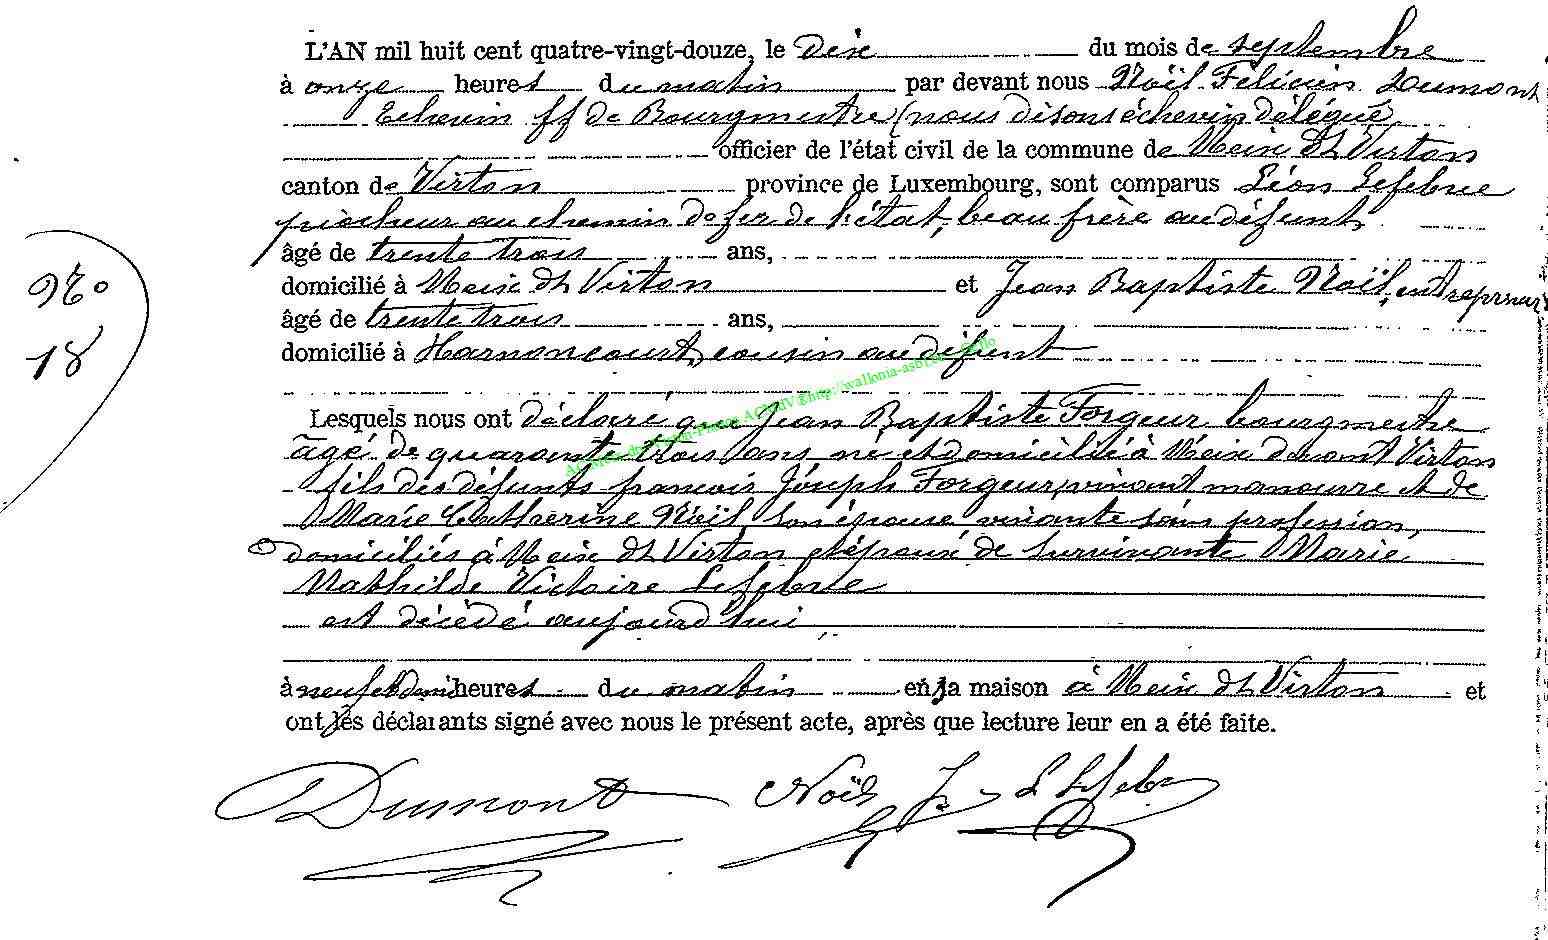 L'AN mil huit cent quatre-vingt-douze, le dix du mois de septembre
à onze heures du matin par devant nous Noël Félicien Dumont
Echevin ff de Bourgmestre (nous disons échevin délégué
officier de l'état civil de la commune de Meix dt Virton
canton de Virton province de Luxembourg, sont comparus Léon Lefebvre
piocheur au chemin de fer de l'état, beau frère au défunt
âgé de trente trois ans,
domicilié à Meix dt Virton et Jean Baptiste Noël, entrepreneur
âgé de trente trois ans,
domicilié à Harnoncourt, cousin au défunt
Lesquels nous ont déclaré que Jean Baptiste Forgeur bourgmestre
âgé de quarante trois ans né et domicilié à Meix devant Virton
fils des défunts françois Joseph Forgeur, vivant manouvre et de
Marie Catherine Noël son épouse vivante sans profession,
domiciliés à Meix dt Virton et époux de survivante Marie
Mathilde Victoire Lefebvre
est décédé aujourd'hui
à neuf et demi heures du matin en sa maison à Meix dt Virton et
ont les déclarants signé avec nous le présent acte, après que lecture leur en a été faite.
Dumont Noël J L Lefebv
No
18